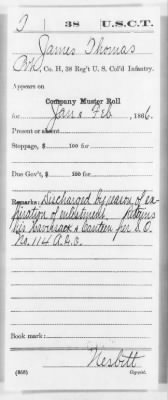 T | 38 | U.S.C.T.
James Thomas
Pvt., Co. H, 38 Reg't U. S. Col'd Infantry.
Appears on
Company Muster Roll
for Jan & Feb, 1866.
Present or absent
Stoppage, $ 100 for
Due Gov't, $ 100 for
Remarks: Discharged by reason of ex-
piration of enlistment. Retains
his Haversack & Canteen per G.O.
No. 114 A.G.O.
Book mark:
Nesbitt
(858) Copyist.